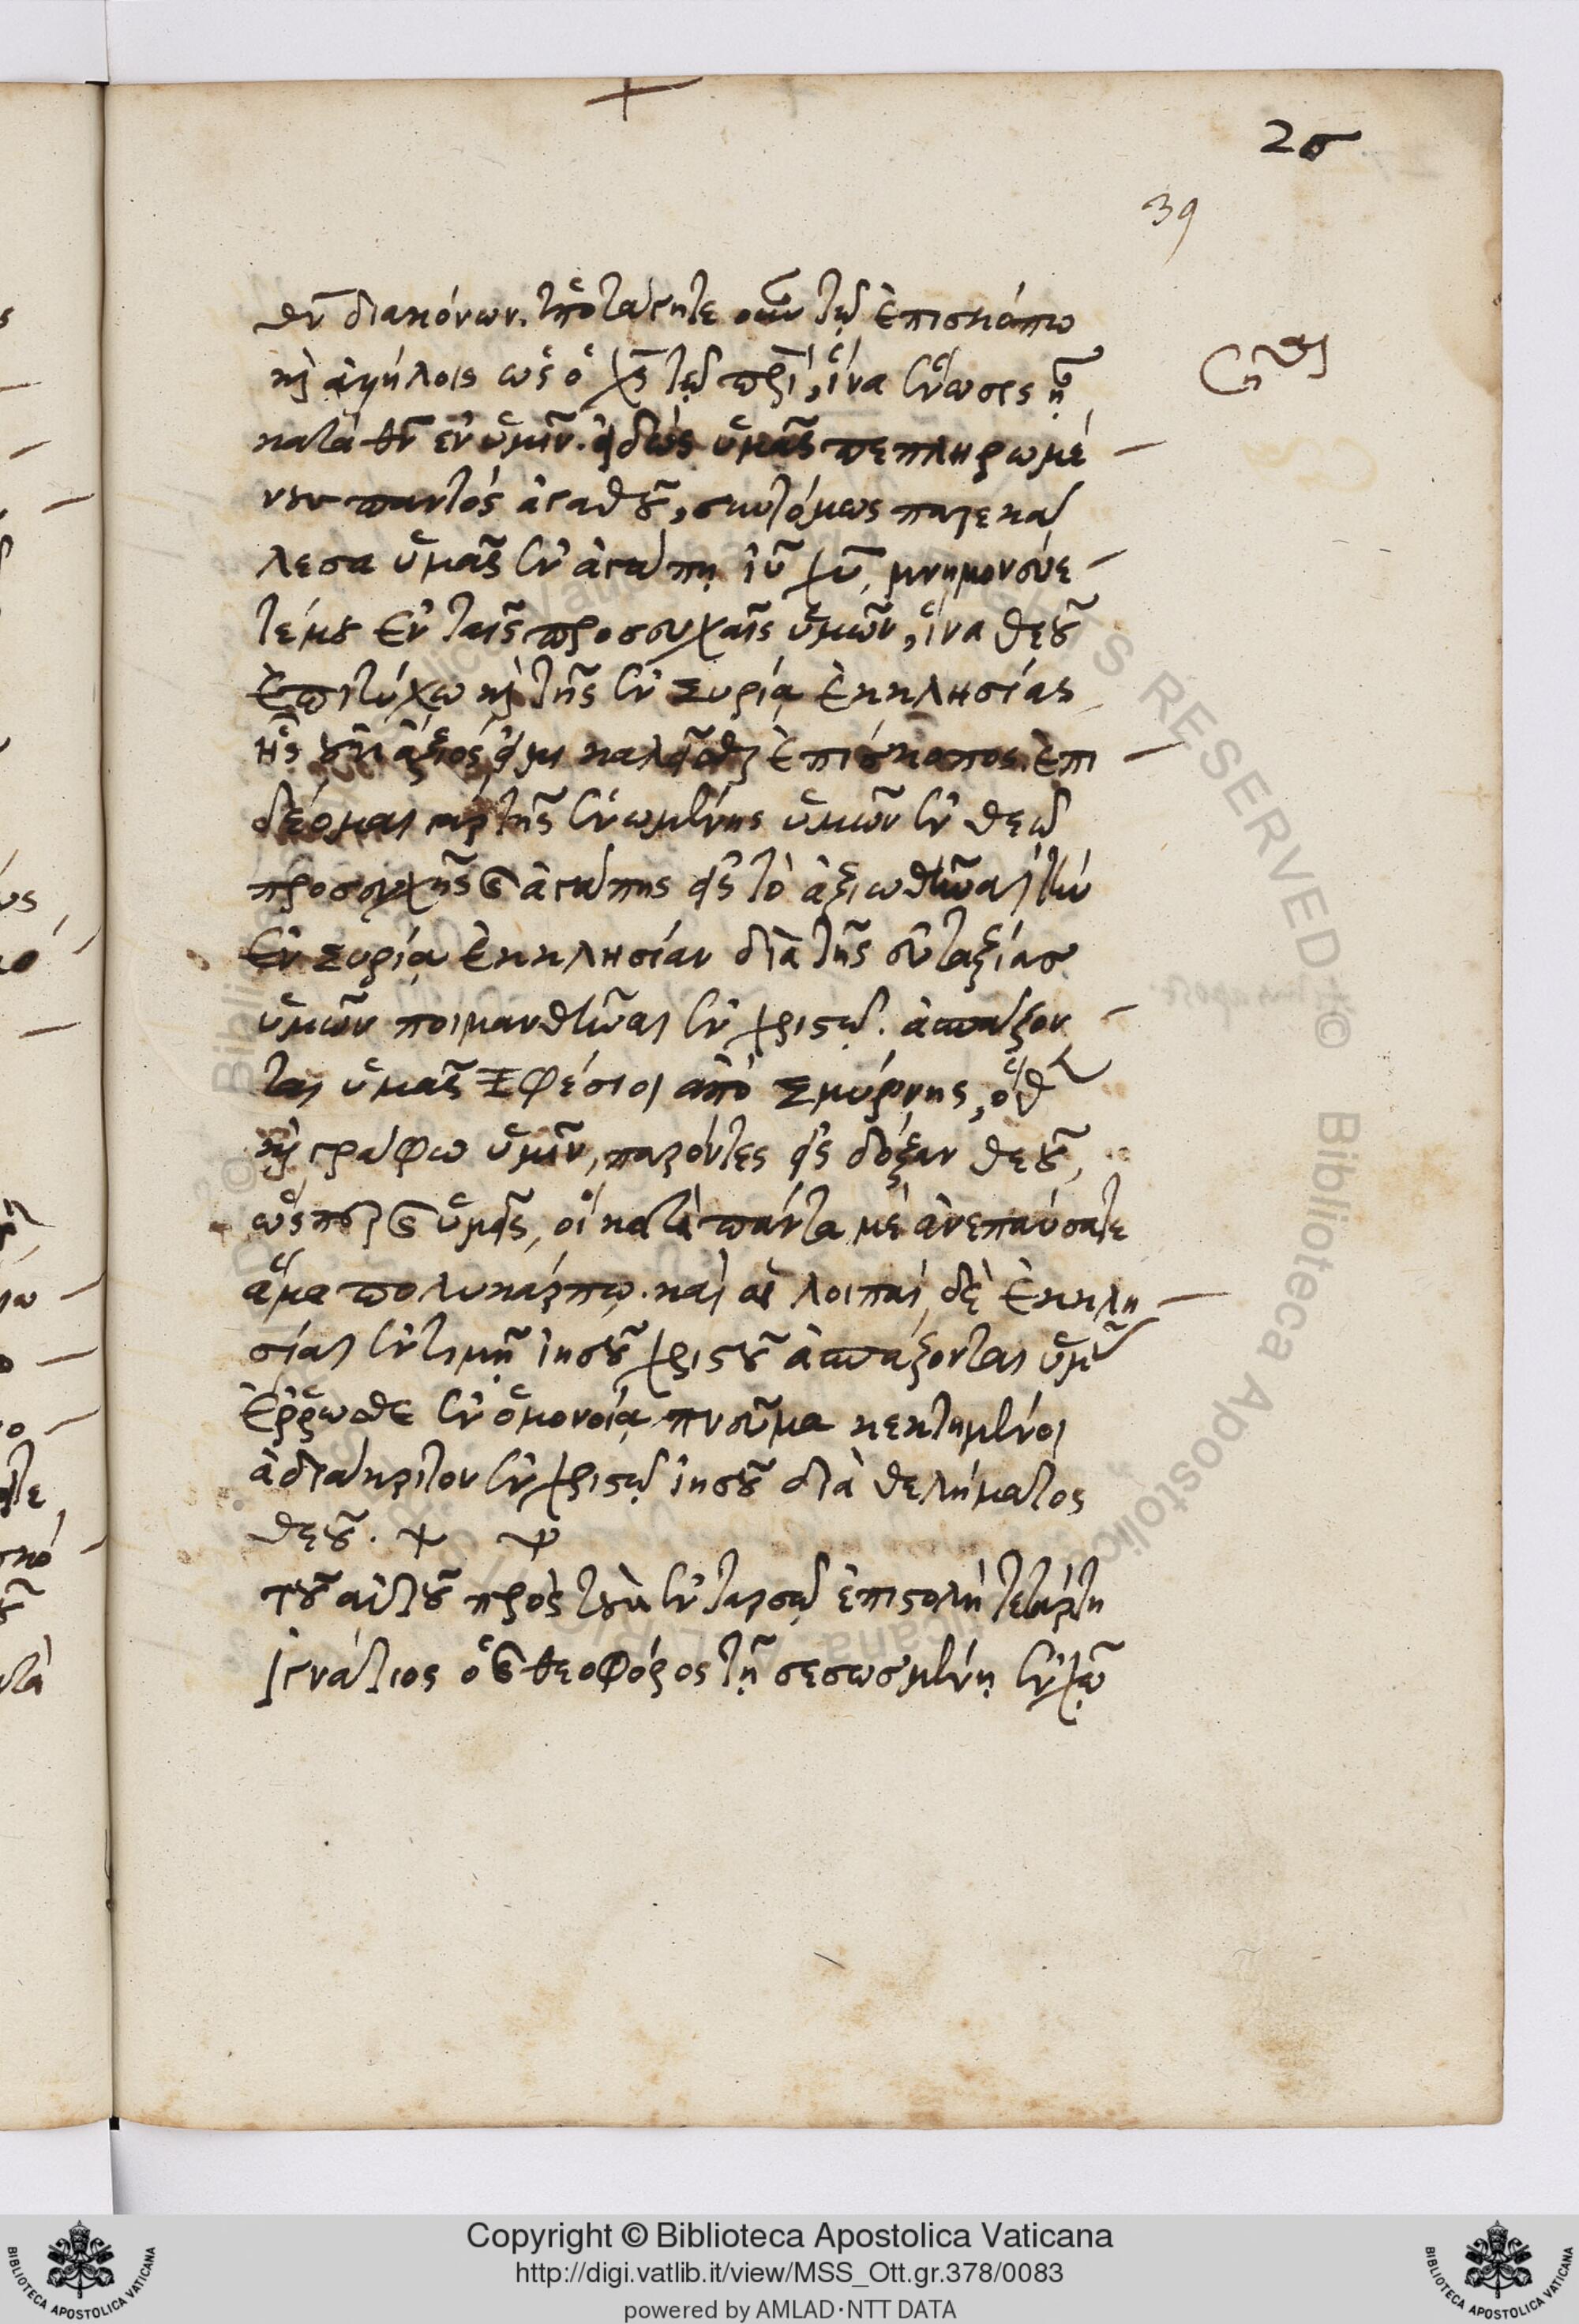 2σ
39
θν̅ διακόνων. ὑποτάγητε οὖν τῷ ἐπισκόπω
καὶ ἀλλήλοις ὡς ὁ χς̅ τῷ πρι̅, ἵνα ἕνωσις ᾖ
κατὰ θν̅ ἐν ὑμῖν. εἰδὼς ὑμᾶς πεπληρωμέ
νου παντὸς ἀγαθοῦ, συντόμως παρεκά
λεσα ὑμᾶς ἐν ἀγάπῃ ιυ̅ χυ̅, μνημονεύε
τέ μου ἐν ταῖς προσευχαῖς ὑμῶν, ἵνα θεοῦ
ἐπιτύχω καὶ τῆς ἐν Συρίᾳ ἐκκλησίας
ἧς οὐκ ἄξιός εἰμι καλεῖσθαι ἐπίσκοπος. ἐπι
δέομαι γὰρ τῆς ἑνωμένης ὑμῶν ἐν θεῷ
προσευχῆς καὶ ἀγάπης εἰς τὸ ἀξιωθῆναι τὴν
ἐν Συρίᾳ ἐκκλησίαν διὰ τῆς εὐταξίας
ὑμῶν ποιμανθῆναι ἐν χριστῷ. ἀσπάζον
ται ὑμᾶς Ἐφέσιοι ἀπὸ Σμύρνης, ὅθεν
καὶ γράφω ὑμῖν, παρόντες εἰς δόξαν θεοῦ,
ὥσπερ καὶ ὑμεῖς, οἳ κατὰ πάντα με ἀνεπαύσατε
ἅμα πολυκάρπῳ. καὶ αἱ λοιπαὶ δὲ ἐκκλη
σίαι ἐν τιμῇ ἰησοῦ χριστοῦ ἀσπάζονται ὑμᾶς
Ἔρρωσθε ἐν ὁμονοίᾳ πνεῦμα κεκτημένοι
ἀδιάκριτον ἐν χριστῷ ἰησοῦ διὰ θελήματος
θεοῦ.
τοῦ αὐτοῦ πρὸς τοὺς ἐν ταρσῷ ἐπιστολὴ τετάρτη
Ἰγνάτιος ὁ καὶ θεοφόρος τῇ σεσωσμένῃ ἐν χῷ
Copyright © Biblioteca Apostolica Vaticana
http://digi.vatlib.it/view/MSS_Ott.gr.378/0083
powered by AMLAD·NTT DATA